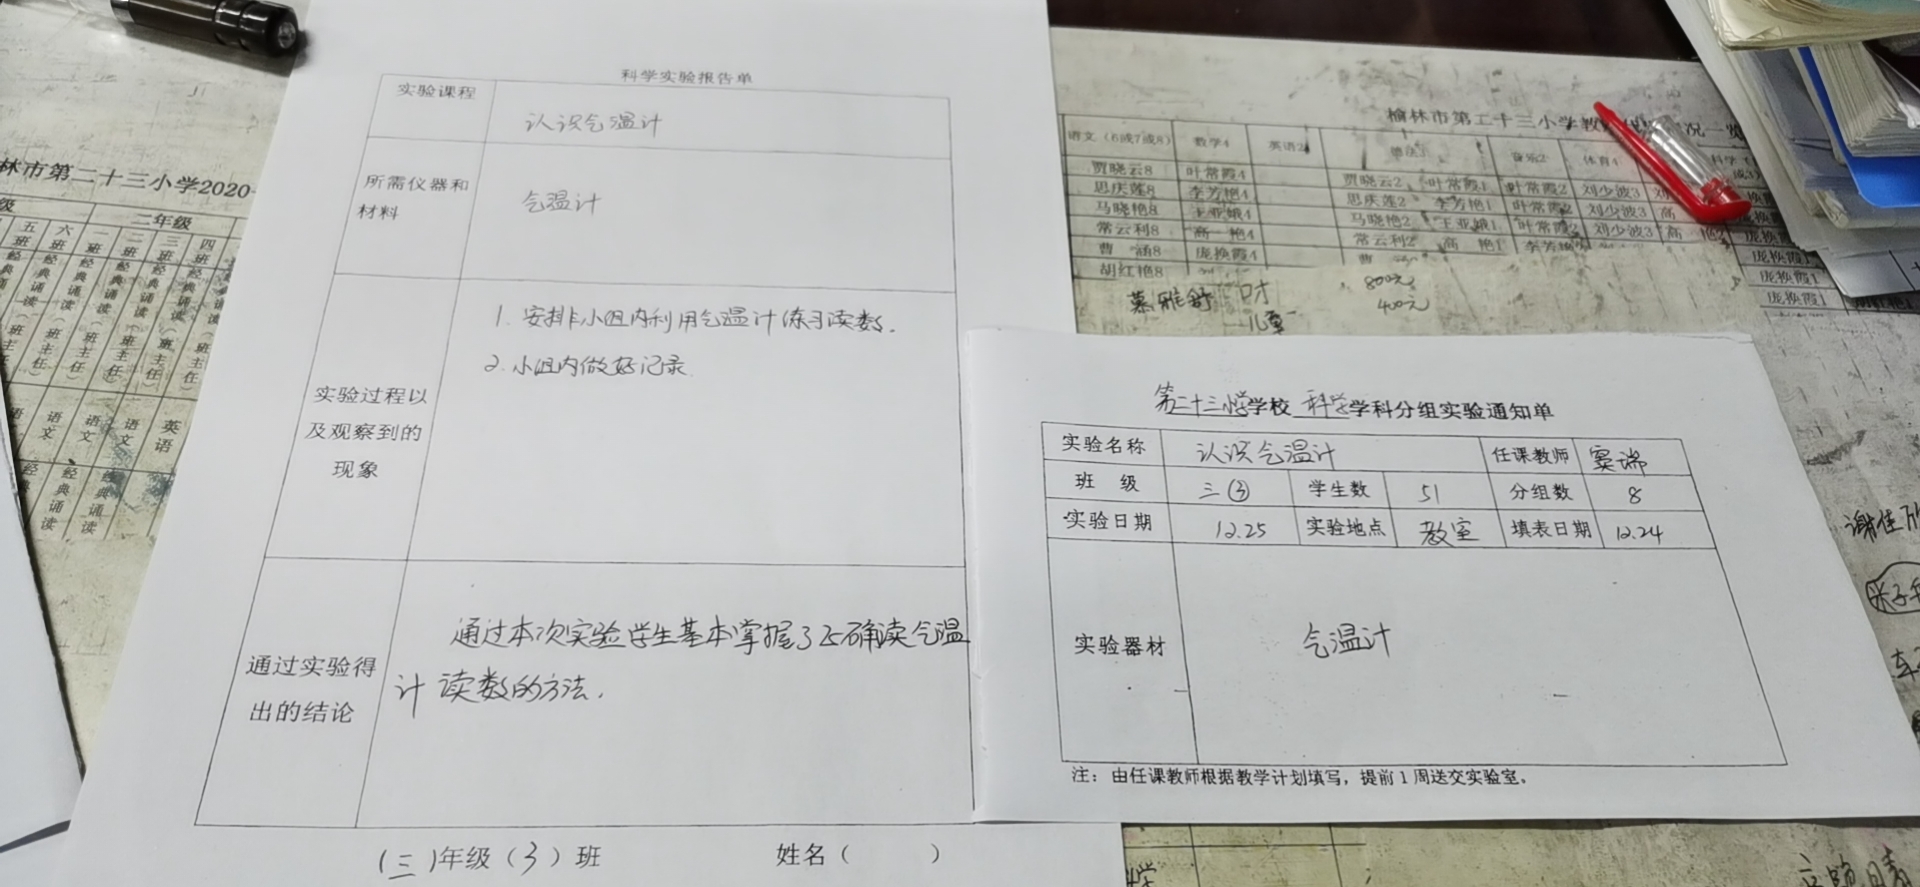 科学实验报告单
实验课程
认识气温计
所需仪器和
材料
气温计
实验过程以
及观察到的
现象
1. 安排小组内利用气温计练习读数.
2. 小组内做好记录
通过实验得
出的结论
通过本次实验学生基本掌握了正确读气温
计读数的方法.
(三)年级(3)班 姓名( )
第二十三小学学校 科学学科分组实验通知单
实验名称 认识气温计 任课教师 窦瑞
班 级 三③ 学生数 51 分组数 8
实验日期 12.25 实验地点 教室 填表日期 12.24
实验器材 气温计
注：由任课教师根据教学计划填写，提前1周送交实验室。
林市第二十三小学2020
二年级
五班 六班 一班 二班 三班 四班
经典诵读（班主任）
语文 语文 语文 英语
经典诵读
榆林市第二十三小学
语文（6或7或8） 数学4 英语2 音乐2 体育4
贾晓云8 叶常霞4 贾晓云2 叶常霞1 叶常霞2 刘少波3
思庆莲8 李芳艳4 思庆莲2 李芳艳1 叶常霞2 刘少波3
马晓艳8 王亚娥4 马晓艳2 王亚娥1 叶常霞2 刘少波3
常云利8 高 艳4 常云利2 高 艳1
曹 涵8 庞换霞4
胡红艳8
800元
400元
儿童
庞换霞1
庞换霞1